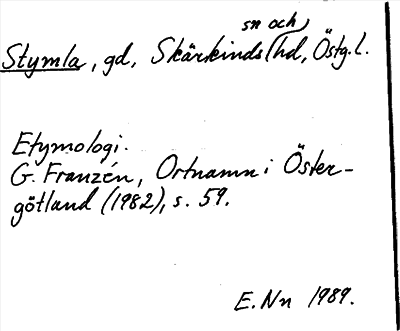 Stymla, gd, Skärkinds sn och hd, Östg.l.
Etymologi.
G. Franzén, Ortnamn i Öster-
götland (1982), s. 59.
E.Nn 1989.